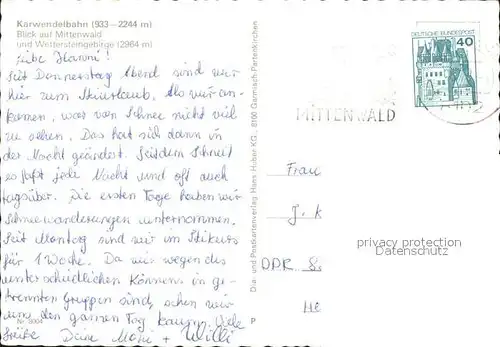 Karwendelbahn (933–2244 m)
Blick auf Mittenwald
und Wettersteingebirge (2964 m)
Liebe Hanni!
Seit Donnerstag Abend sind wir
hier zum Skiurlaub. Als wir an-
kamen, war von Schnee nicht viel
zu sehen. Das hat sich dann in
der Nacht geändert. Seitdem schneit
es fast jede Nacht und oft auch
tagsüber. Die ersten Tage haben wir
Schneewanderungen unternommen.
Seit Montag sind wir im Skikurs
für 1 Woche. Da wir wegen des
unterschiedlichen Könnens in ge-
trennten Gruppen sind, sehen wir
uns den ganzen Tag kaum. Viele
Nr. 9004
Deine + Willi
Dia- und Postkartenverlag Hans Huber KG., 8100 Garmisch-Partenkirchen
DEUTSCHE BUNDESPOST
40
MITTENWALD
Frau
J. K
DDR
He
P
privacy protection
Datenschutz